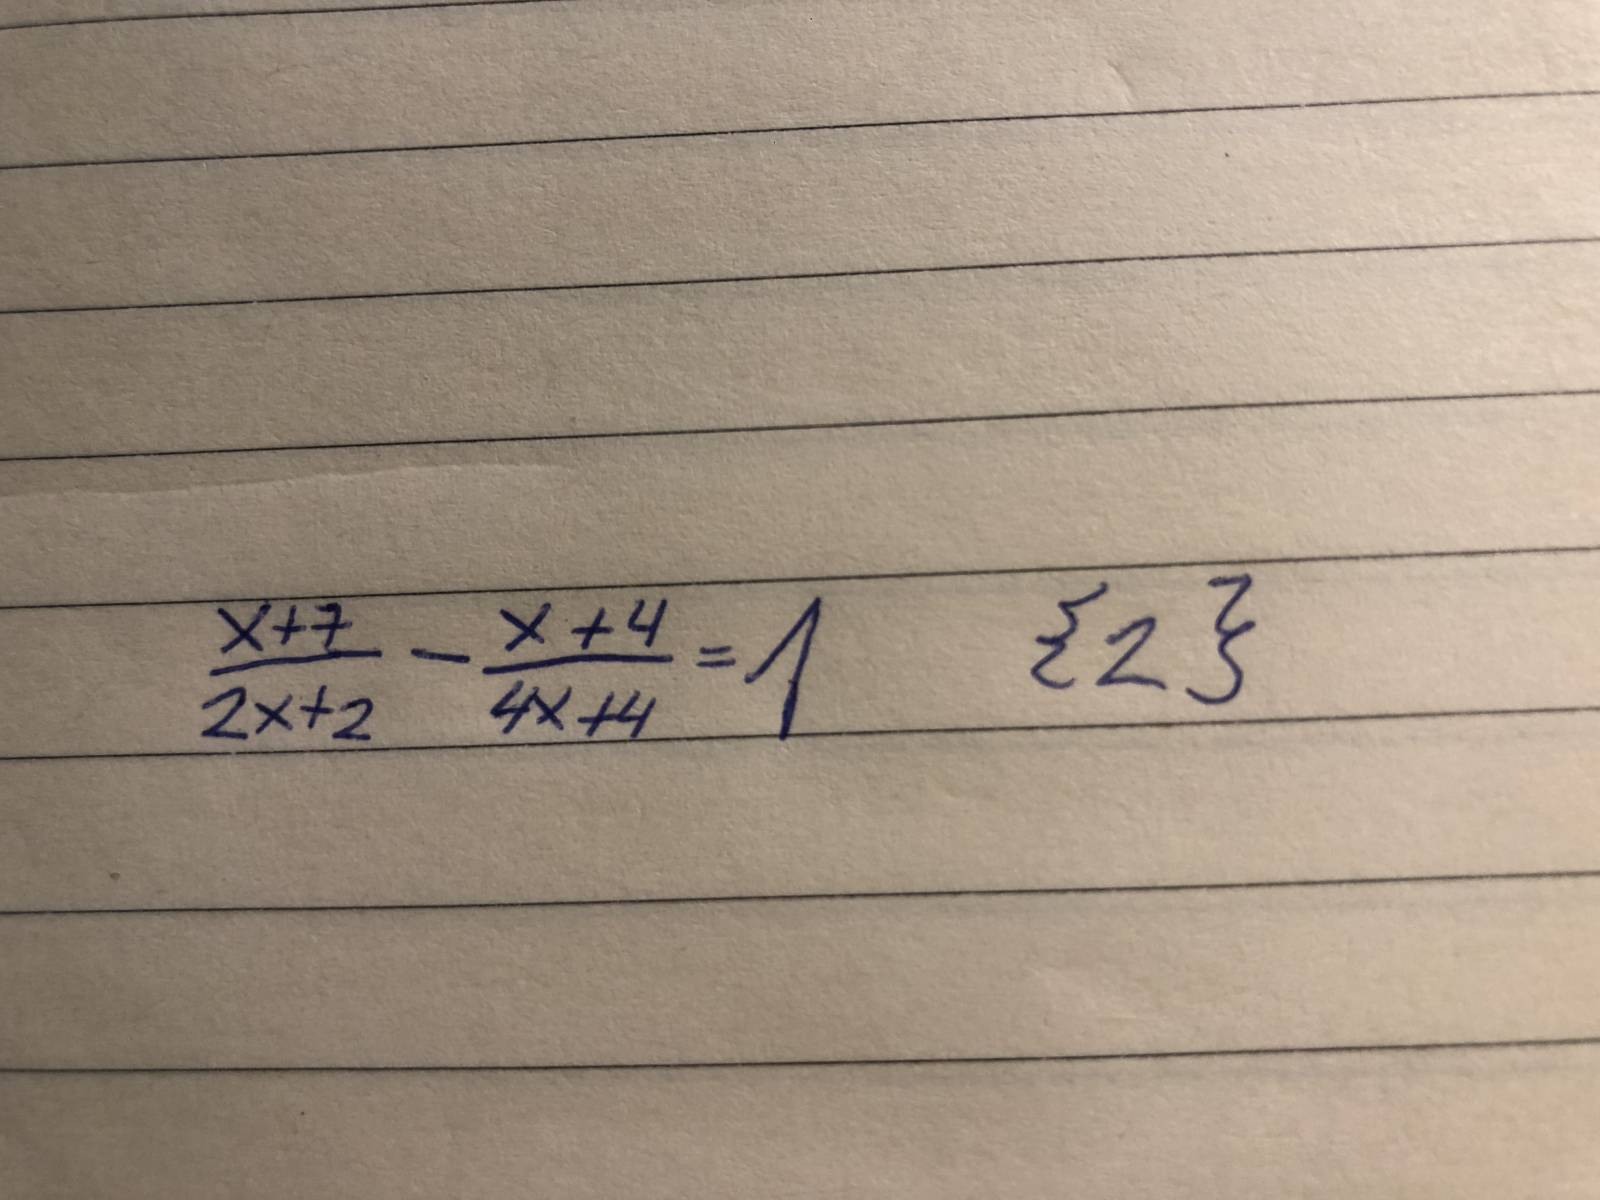 \frac{x+7}{2x+2} - \frac{x+4}{4x+4} = 1 {2}